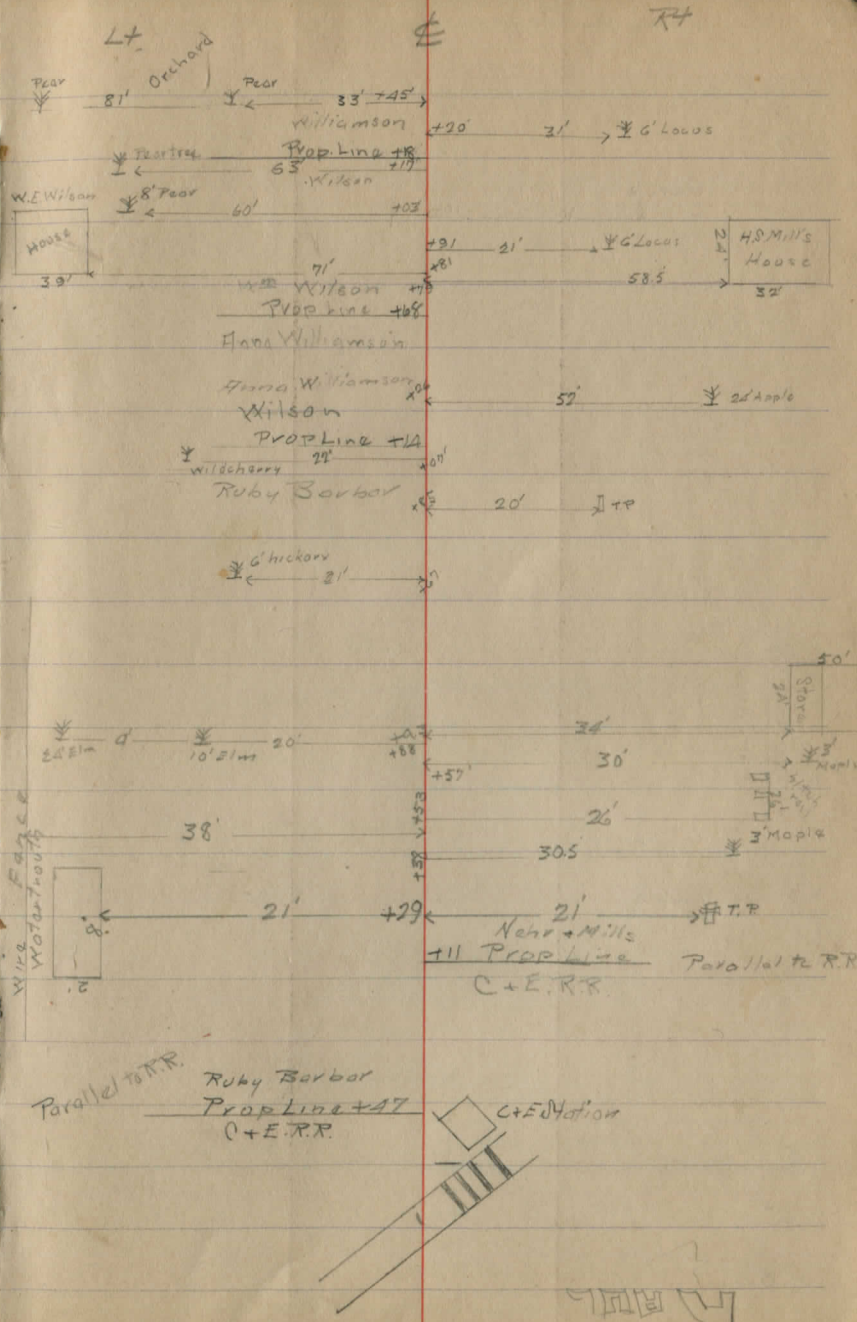 Lt ℄ Rt
Orchard
Pear 81' Pear 33' +45'
Williamson +20' 31' 6" Locus
Peartree Prop. Line +18
63' +17
Wilson
W.E Wilson 8" Pear 60' +03'
House +91 21' 6" Locus 24' H.S. Mill's House
39' 71' +81
58.5 32'
Wm Wilson
Prop Line +68
Anna Williamson
Anna Williamson
52' 24" Apple
Wilson
Prop Line +14
22' 07'
wildcherry
Ruby Barbor 20' TP
6" hickory
21'
50'
Store
34'
10" Elm 20' +88
30' 3" Maple
+57'
+53
38' 26'
3" Maple
+38 30.5
Wire Fence
Watertrough
8'
21' +29 21' T.P.
2'
Nehr + Mills
+11 Prop Line Parallel to R.R
C + E. R.R
Parallel to R.R.
Ruby Barbor
Prop Line +47 C+E Station
C + E. R.R.